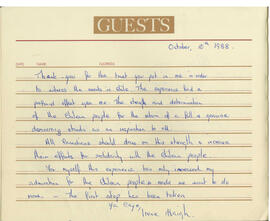 GUESTS
October, 10th 1988.
DATE NAME ADDRESS
Thank you for the trust you put in me in order
to witness the events in Chile. The experience had a
profound effect upon me. The strength and determination
of the Chilean people for the return of a full & genuine
democracy stands as an inspiration to all.
All Democrats should draw on this strength & increase
their efforts for solidarity with the Chilean people.
For myself this experience has only increased my
admiration for the Chilean people & made me want to do
more. - The first step has been taken